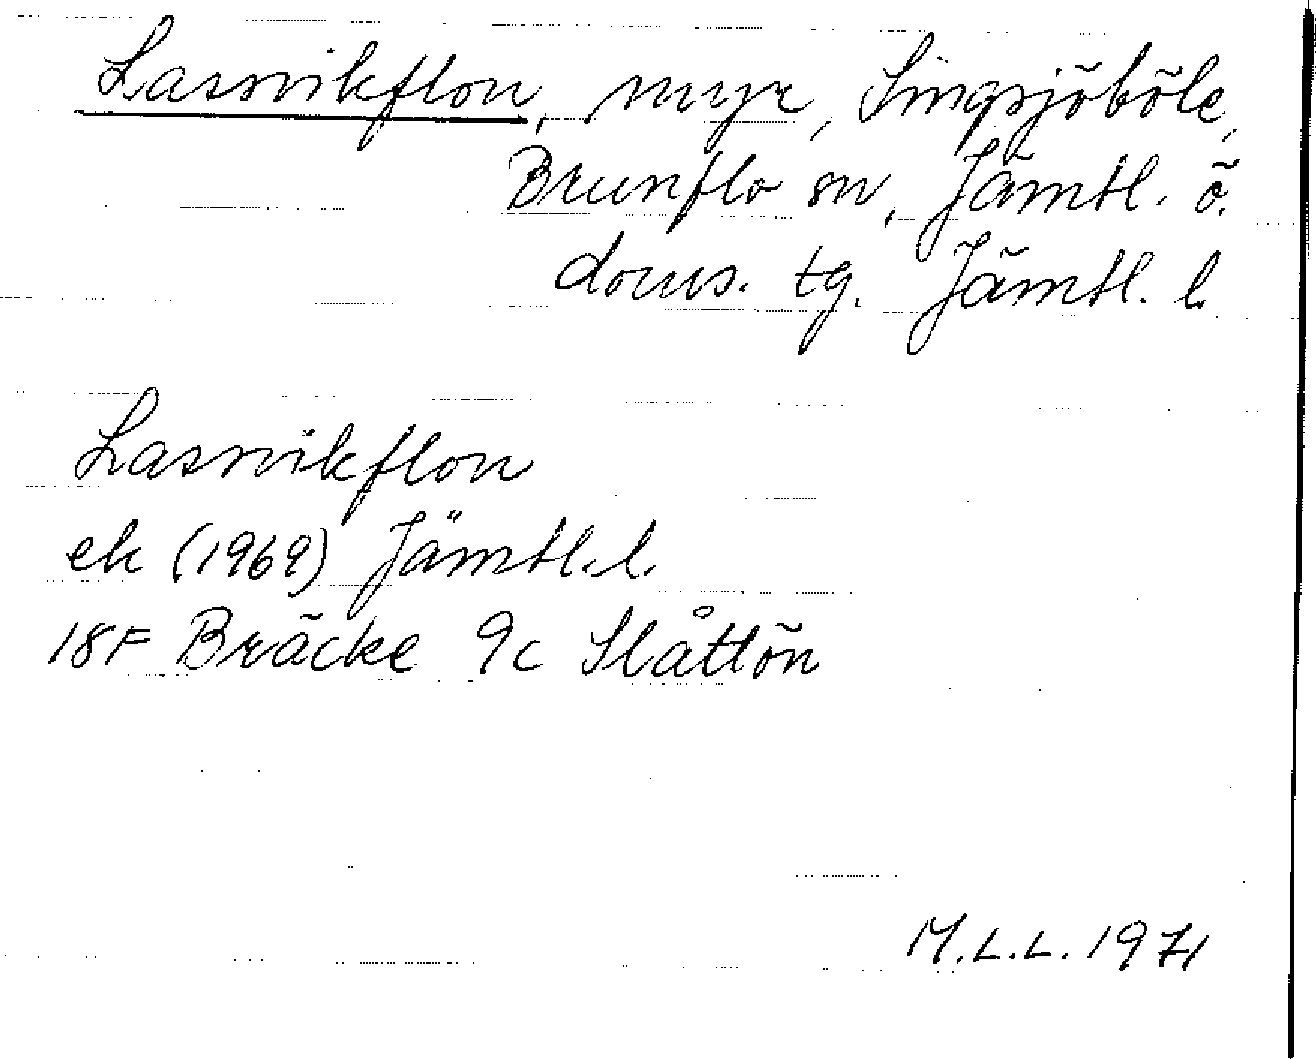 Lassvikflon, myr, Singsjöböle,
Brunflo sn, Jämtl. ö.
doms. tg. Jämtl. l.
Lassvikflon
ek (1969) Jämtl.l.
18F Bräcke 9c Slåttön
M.L.L. 1971